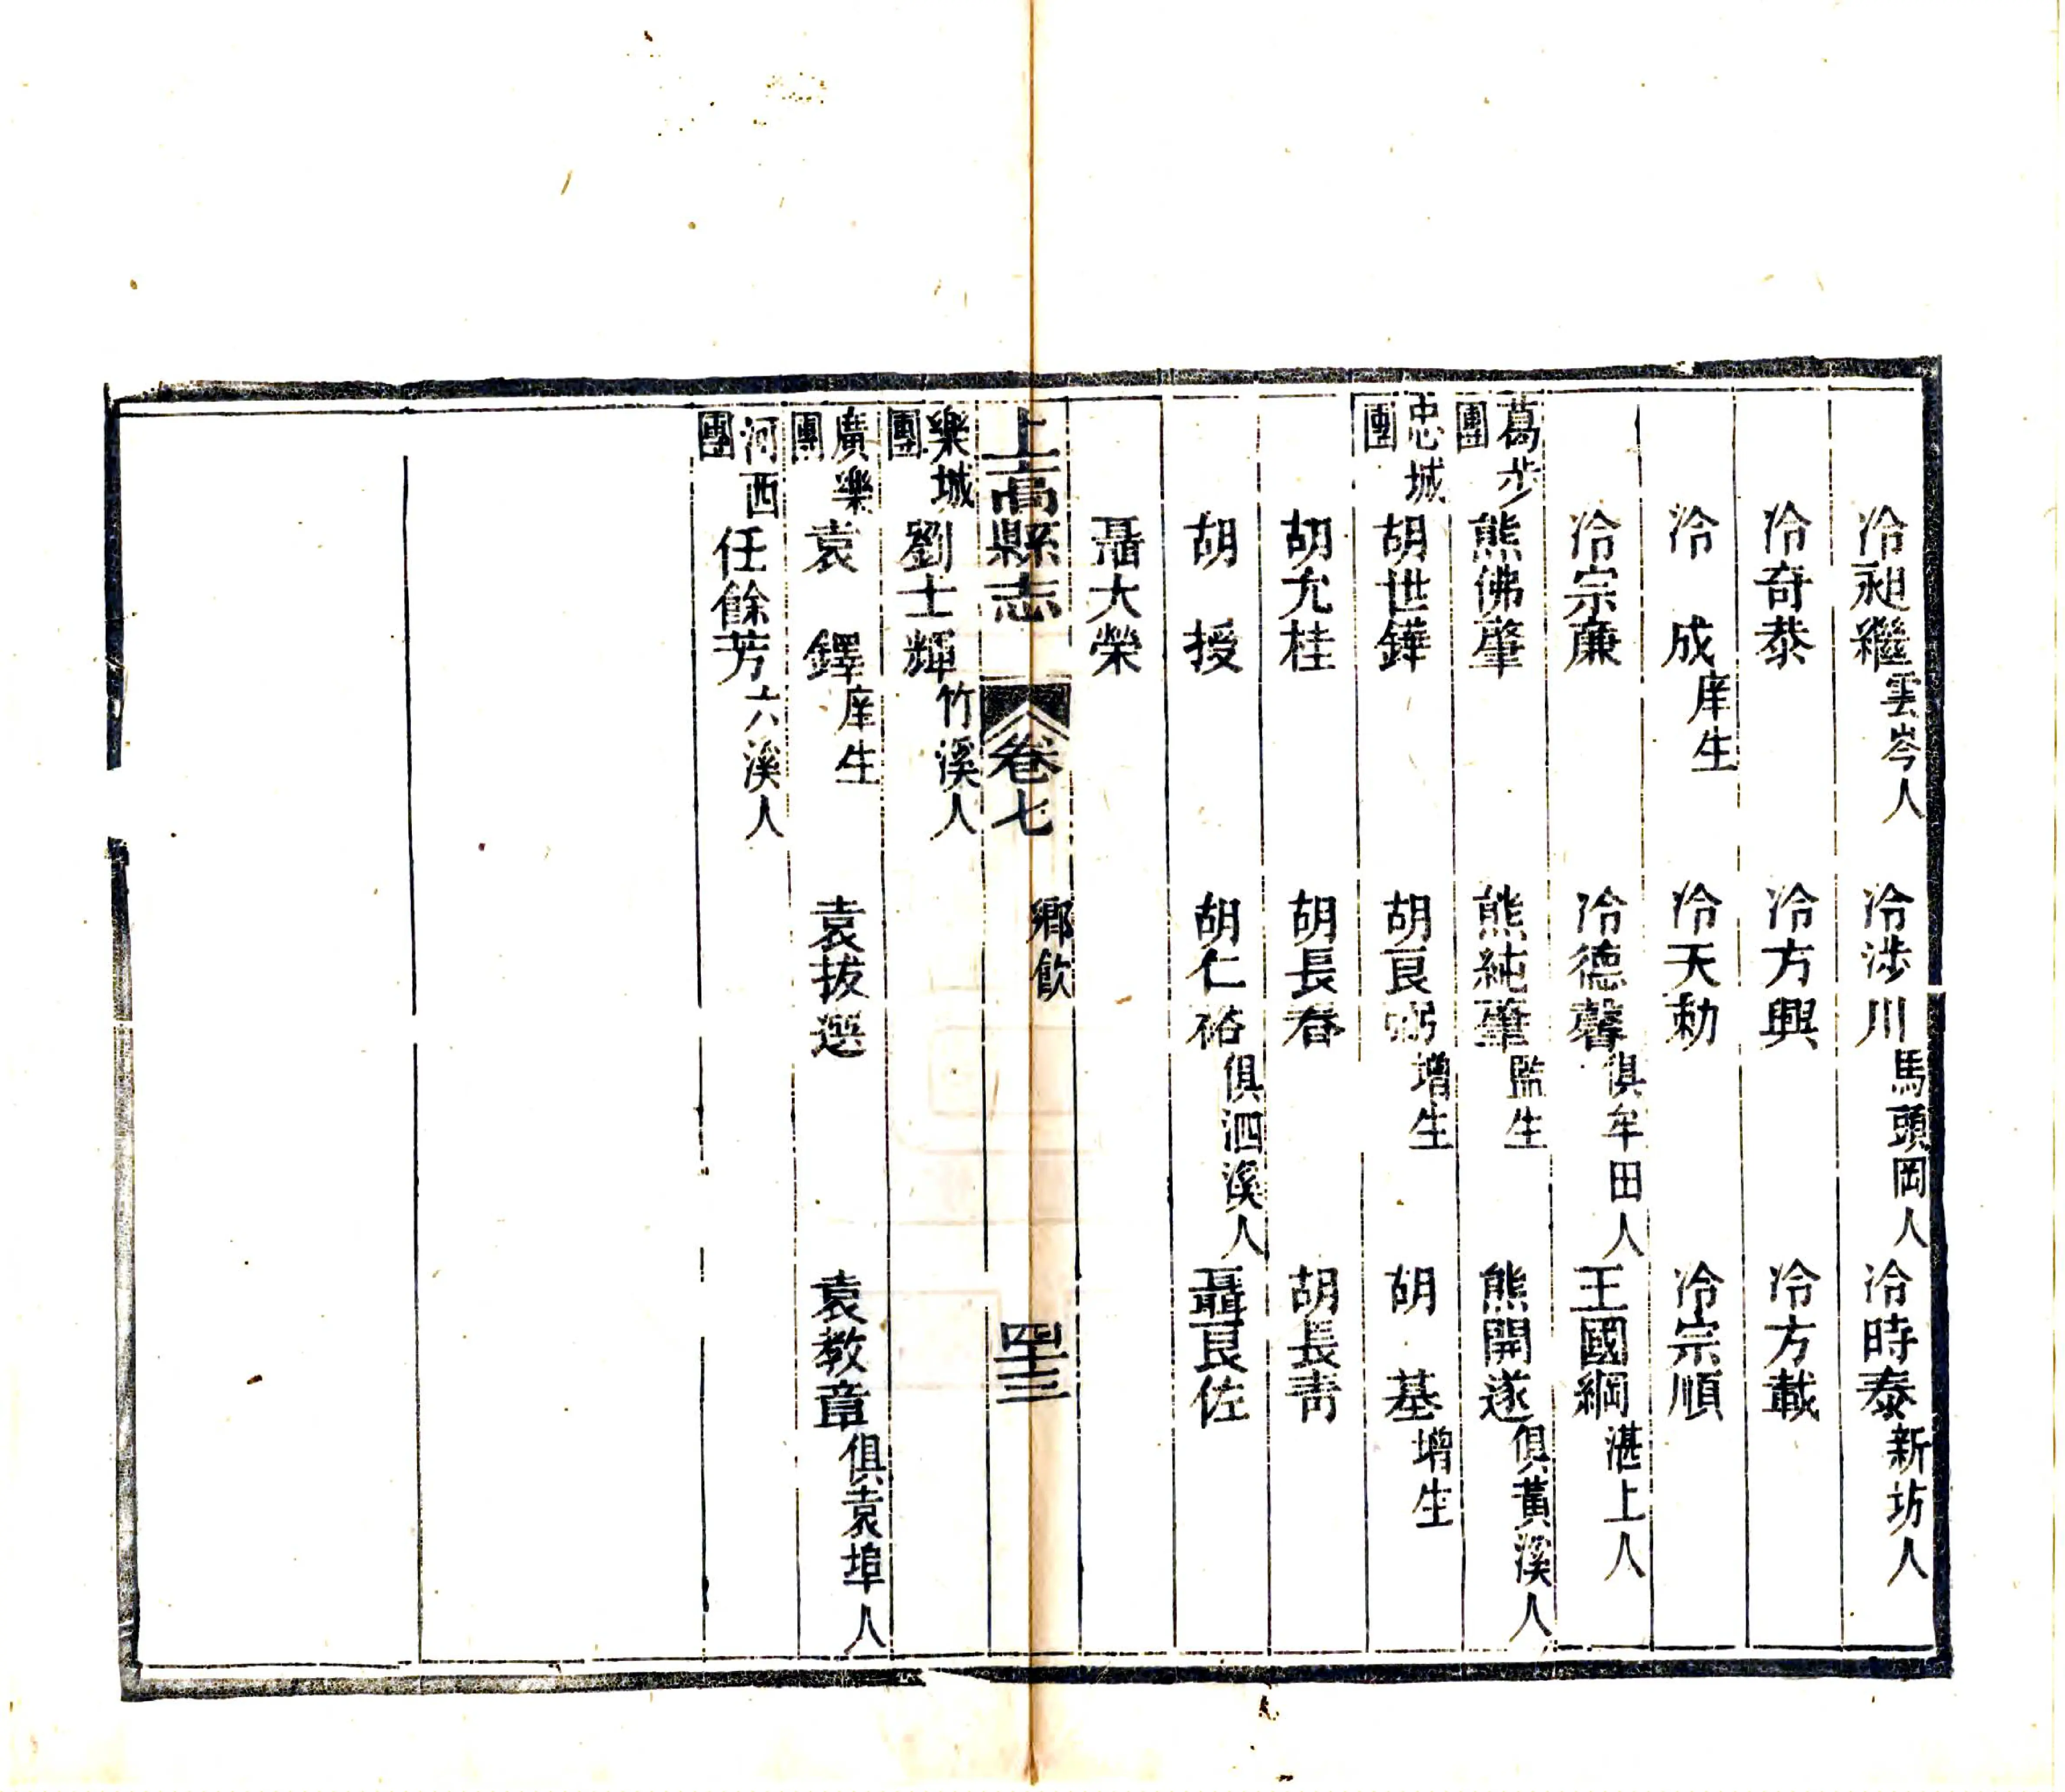 冷昶繼雲岑人 冷涉川馬頭岡人 冷時泰新坊人
冷奇泰 冷方興 冷方載
冷 成庠生 冷天勅 冷宗順
冷宗廉 冷德馨俱牟田人 王國綱湛上人
葛步團 熊佛肇 熊純肇監生 熊開遂俱黃溪人
忠城團 胡世鏵 胡良弼增生 胡 基增生
胡允桂 胡長春 胡長青
胡 授 胡仁裕俱泗溪人 聶良佐
聶大榮
上高縣志 卷七 鄉飲 四十三
樂城團 劉士輝竹溪人
廣樂團 袁 鐸庠生 袁拔選 袁教章俱袁埠人
河西團 任餘芳六溪人